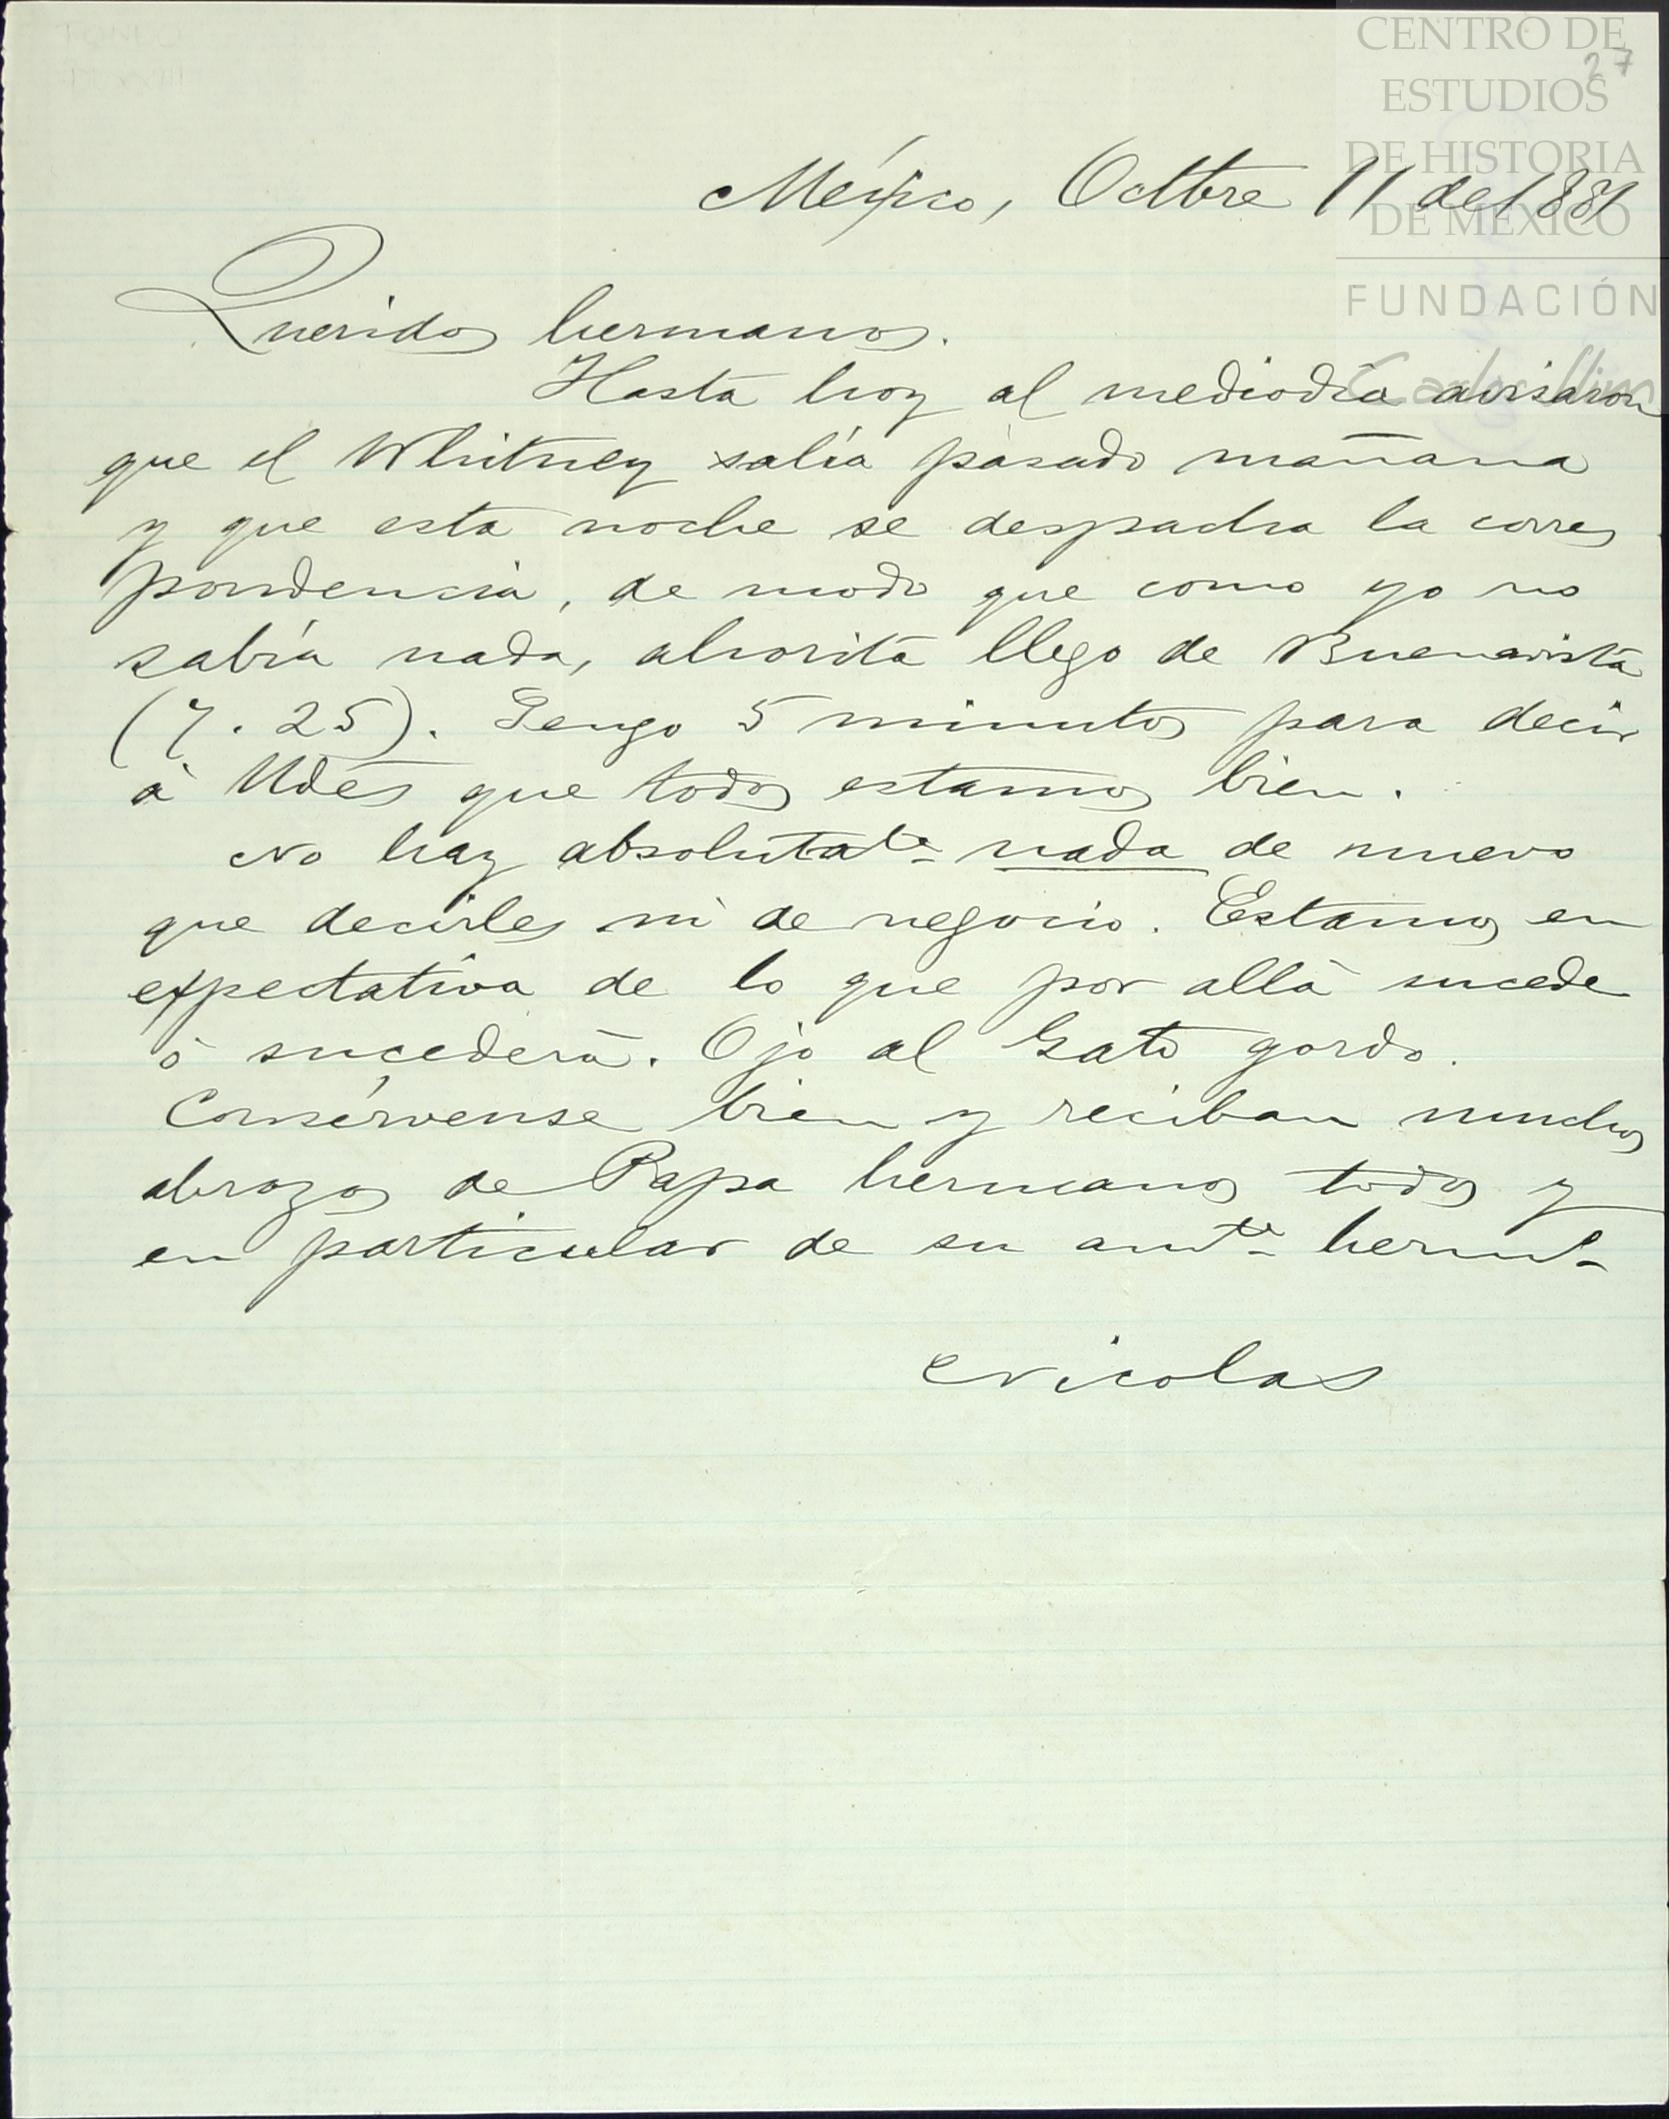 CENTRO DE
ESTUDIOS
DE HISTORIA
DE MÉXICO
FUNDACIÓN
Carlos Slim
27
México, Octbre 11 de 1881
Queridos hermanos.
Hasta hoy al mediodía avisaron
que el Whitney salía pasado mañana
y que esta noche se despacha la corres
pondencia, de modo que como yo no
sabía nada, ahorita llego de Buenavista
(7.25). Tengo 5 minutos para decir
á Udes que todos estamos bien.
No hay absolutate nada de nuevo
que decirles ni de negocio. Estamos en
expectativa de lo que por allá sucede
ó sucederá. Ojo al Gato gordo.
Consérvense bien y reciban muchos
abrazos de Papa hermanos todos y
en particular de su amte hermo
Nicolas